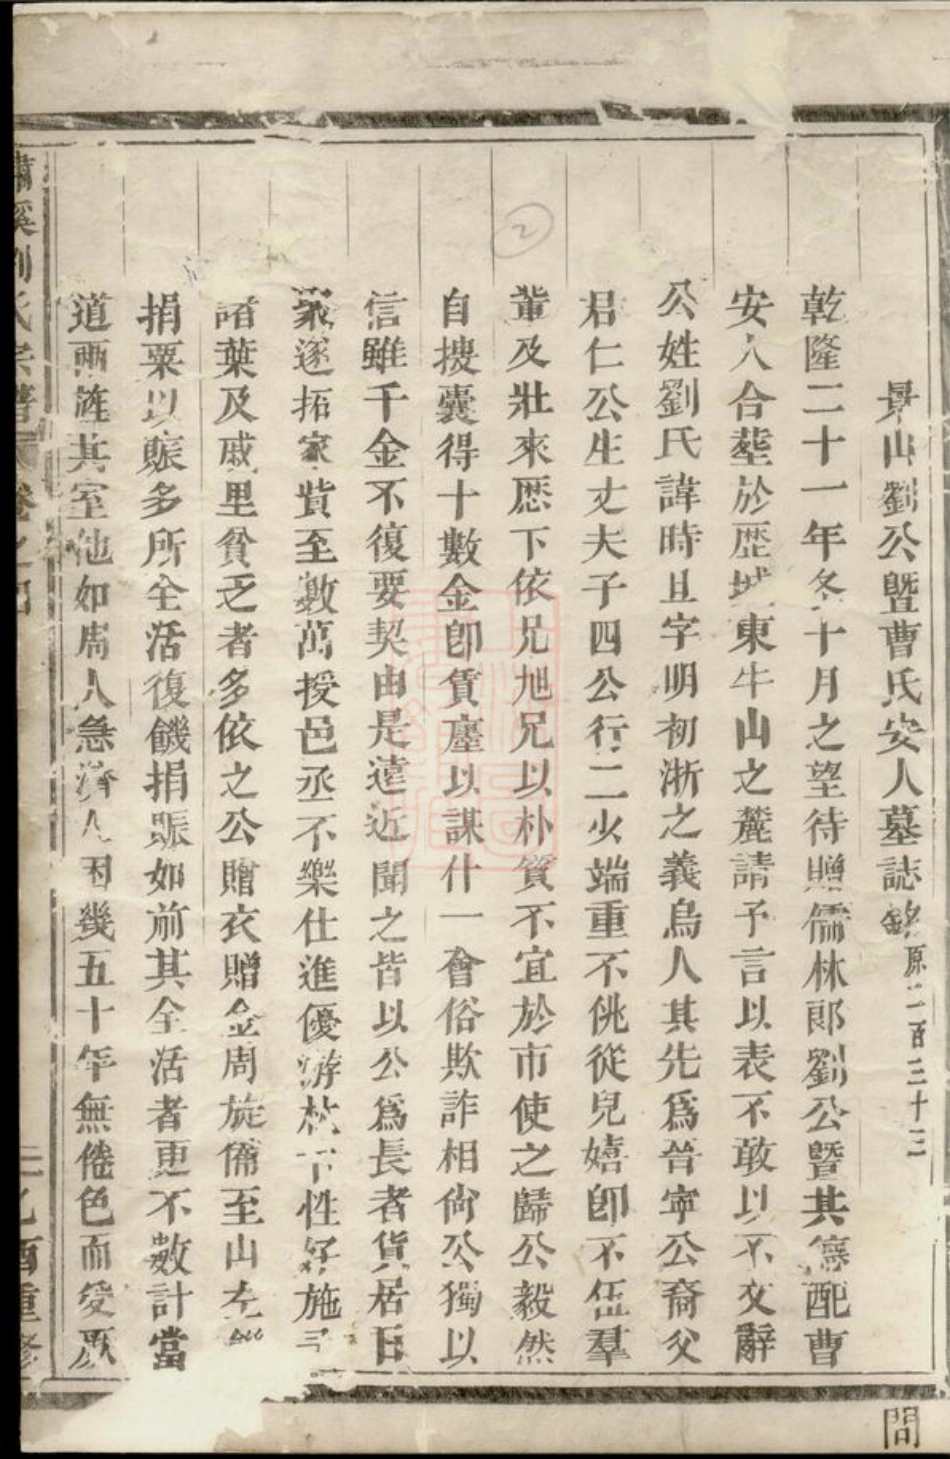 景山劉公暨曹氏安人墓誌銘原二百三十三
乾隆二十一年冬十月之望待贈儒林郎劉公暨其德配曹
安人合塟於歴城東牛山之麓請予言以表不敢以不文辭
公姓劉氏諱時旦字明初浙之義烏人其先爲晉寧公裔父
君仁公生丈夫子四公行二火端重不佻從兒嬉卽不伍羣
軰及壯來歴下依兄旭兄以朴質不宜於市使之歸公毅然
自搜囊得十數金卽賃廛以謀什一會俗欺詐相尙公獨以
信雖千金不復要契由是遠近聞之皆以公爲長者貨居日
裒遂拓家貲至數萬授邑丞不樂仕進優游林下性好施
諸葉及戚里貧乏者多依之公贈衣贈金周旋備至山左
捐粟以賑多所全活復饑捐賑如前其全活者更不數計當
道兩旌其室他如周人急濟人困幾五十年無倦色而受
繡溪劉氏宗譜 卷之四 二 乙酉重修
2
問